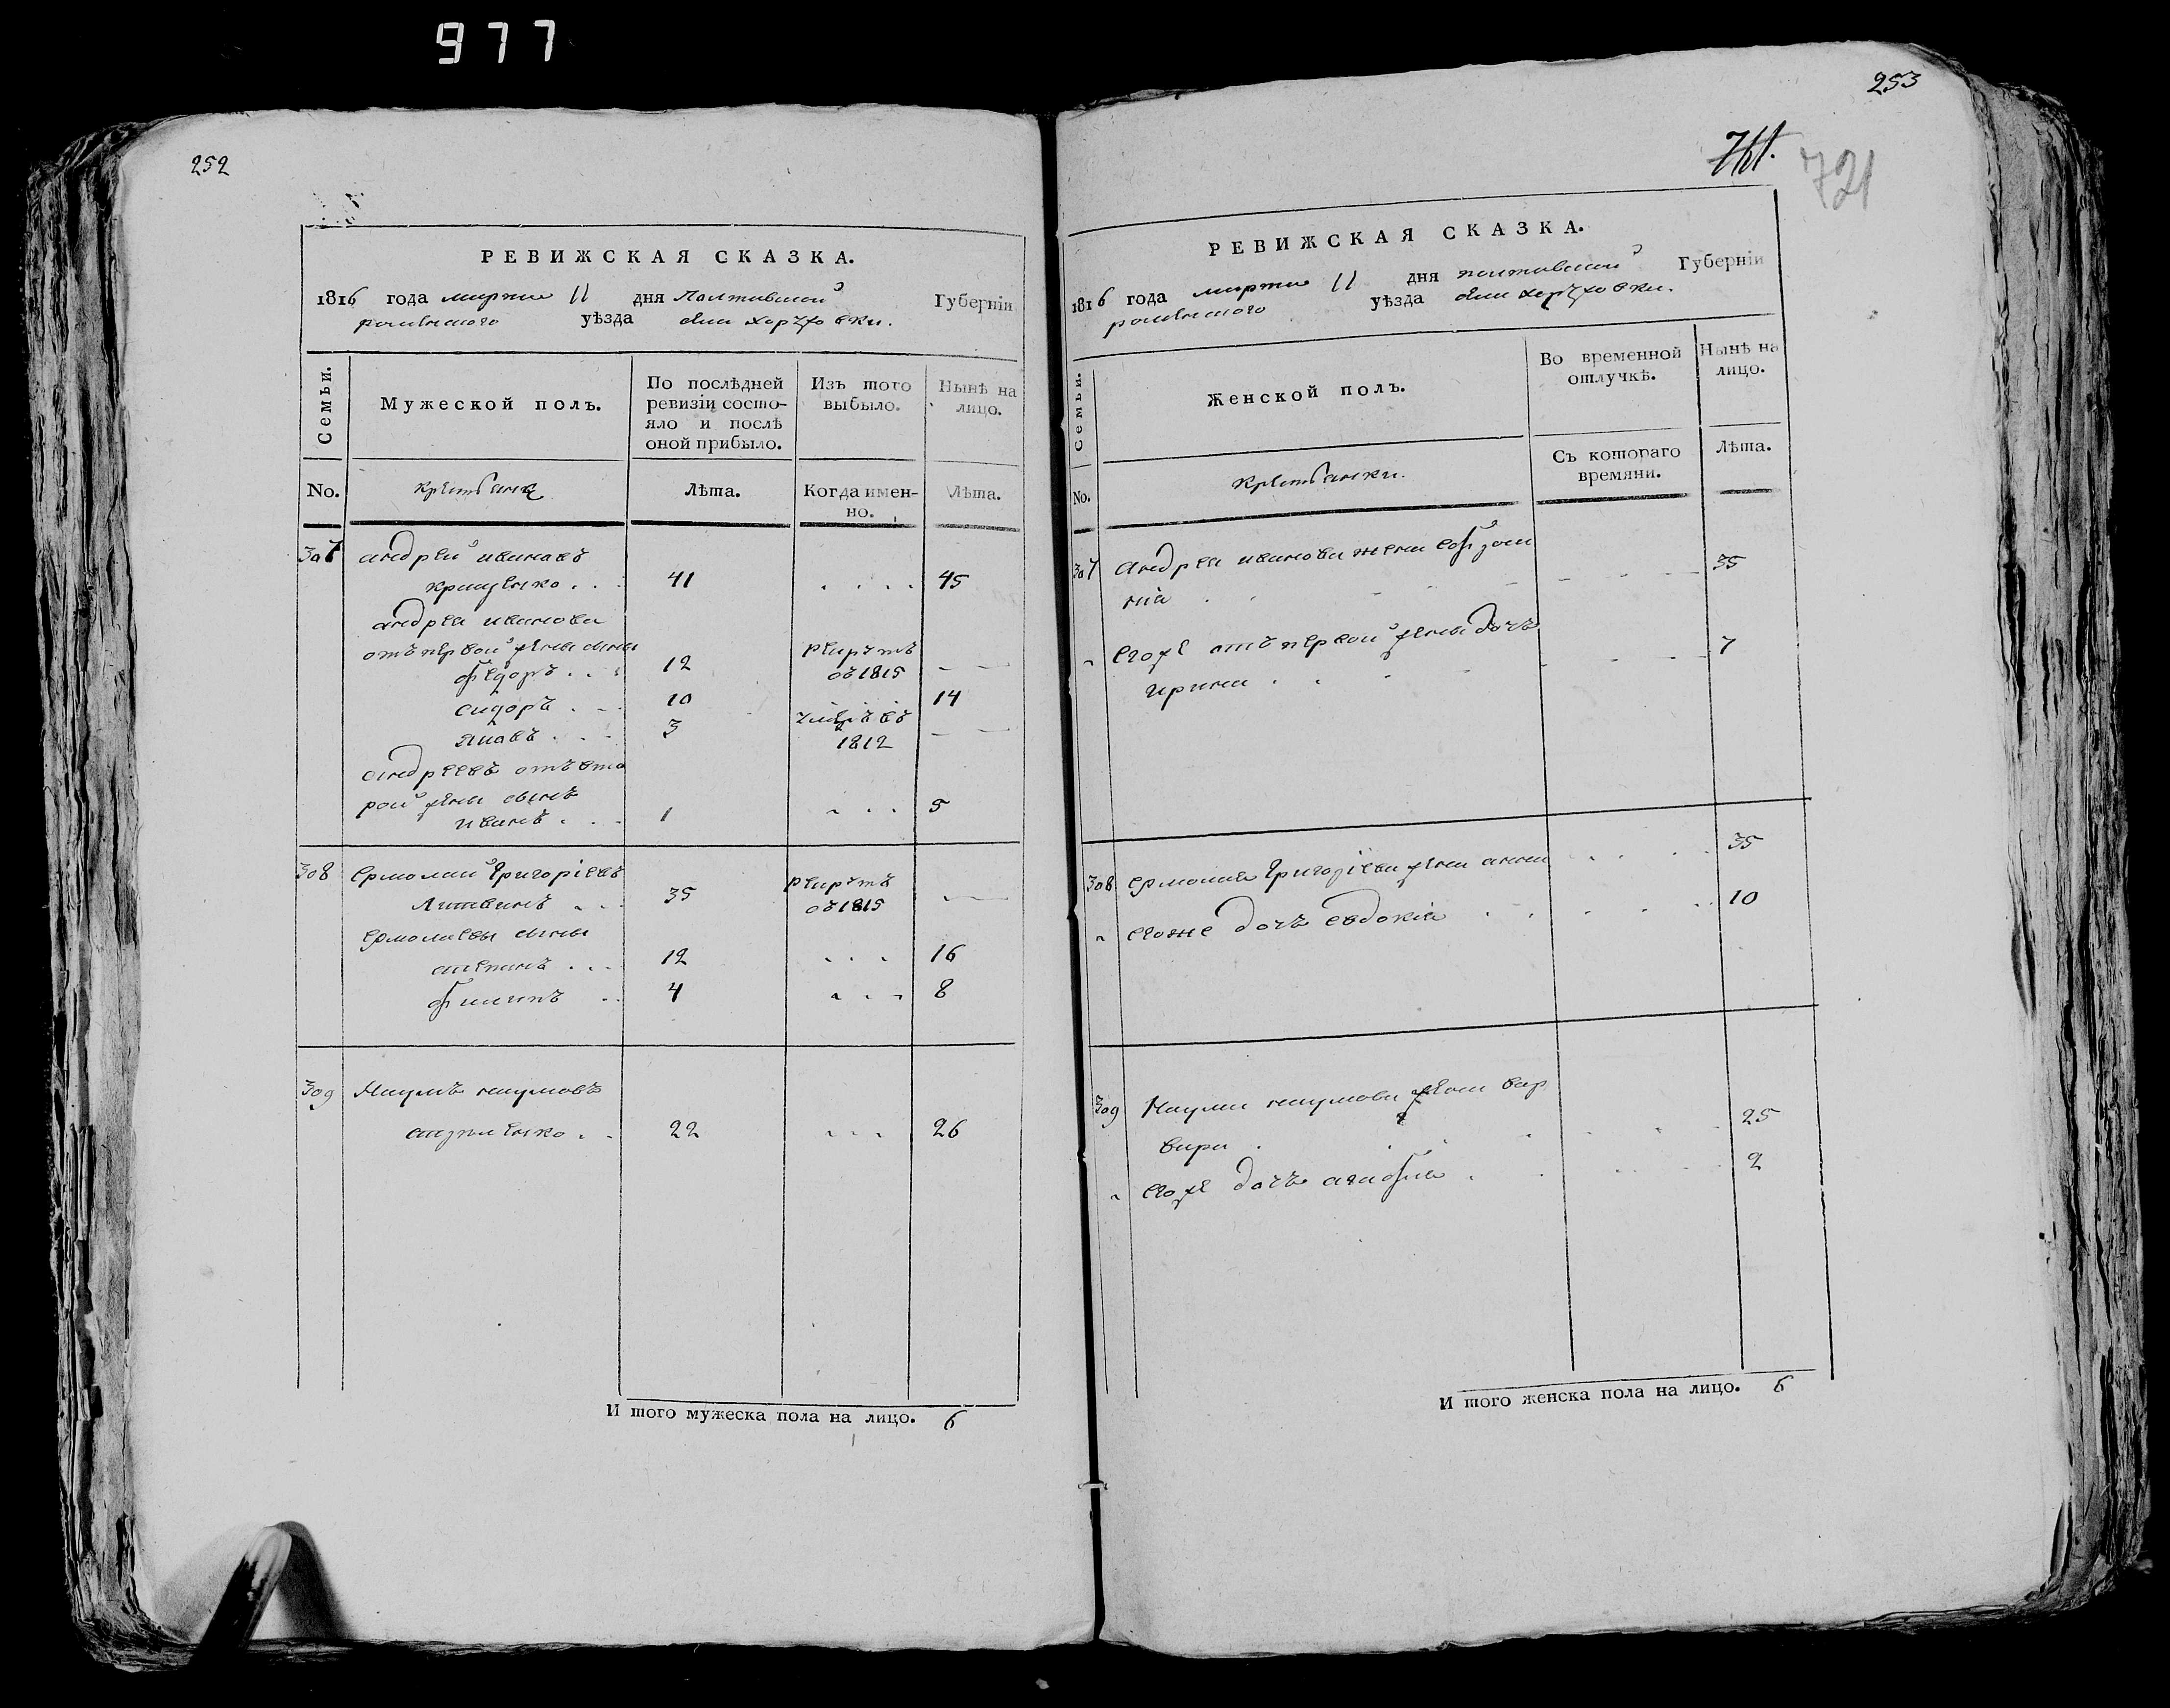 977
252
РЕВИЖСКАЯ СКАЗКА.
1816 года марта 11 дня Полтавской Губерніи
роменского уѣзда села
Семьи.
Мужеской полъ.
По послѣдней ревизіи состояло и послѣ оной прибыло.
Изъ того выбыло.
Нынѣ на лицо.
No.
Крестьяне
Лѣта.
Когда именно.
Лѣта.
307 андрей ивановъ
крищенко . . . 41 . . . . 45
андрея иванова
отъ первой жены сыны
федоръ . . . 12 рекрутъ въ 1815 — —
сидоръ . . . 10 . . . 14
яковъ . . . 3 умре въ 1812 — —
андреевъ отъ вто
рой жены сынъ
иванъ . . . 1 . . . 5
308 ермолай григоріевъ
Литвинъ . . . 35 рекрутъ въ 1815 — —
ермолаевы сыны
степанъ . . . 12 . . . 16
филипъ . . 4 . . . 8
309 Наумъ наумовъ
22 . . . 26
И того мужеска пола на лицо. 6
253
761.
721
РЕВИЖСКАЯ СКАЗКА.
1816 года марта 11 дня полтавской Губерніи
роменского уѣзда села
Семьи.
Женской полъ.
Во временной отлучкѣ.
Нынѣ на лицо.
No.
Крестьянки.
Съ котораго времяни.
Лѣта.
307 Андрея иванова жена
35
" егоже отъ первой жены дочь
ирина . . . . 7
308 ермолая григоріева жена анна . . . . 35
" егоже дочь евдокія . . . . 10
309 Наума наумова жена вар
вара . . . . 25
" егоже дочь агафія . . . . 2
И того женска пола на лицо. 6